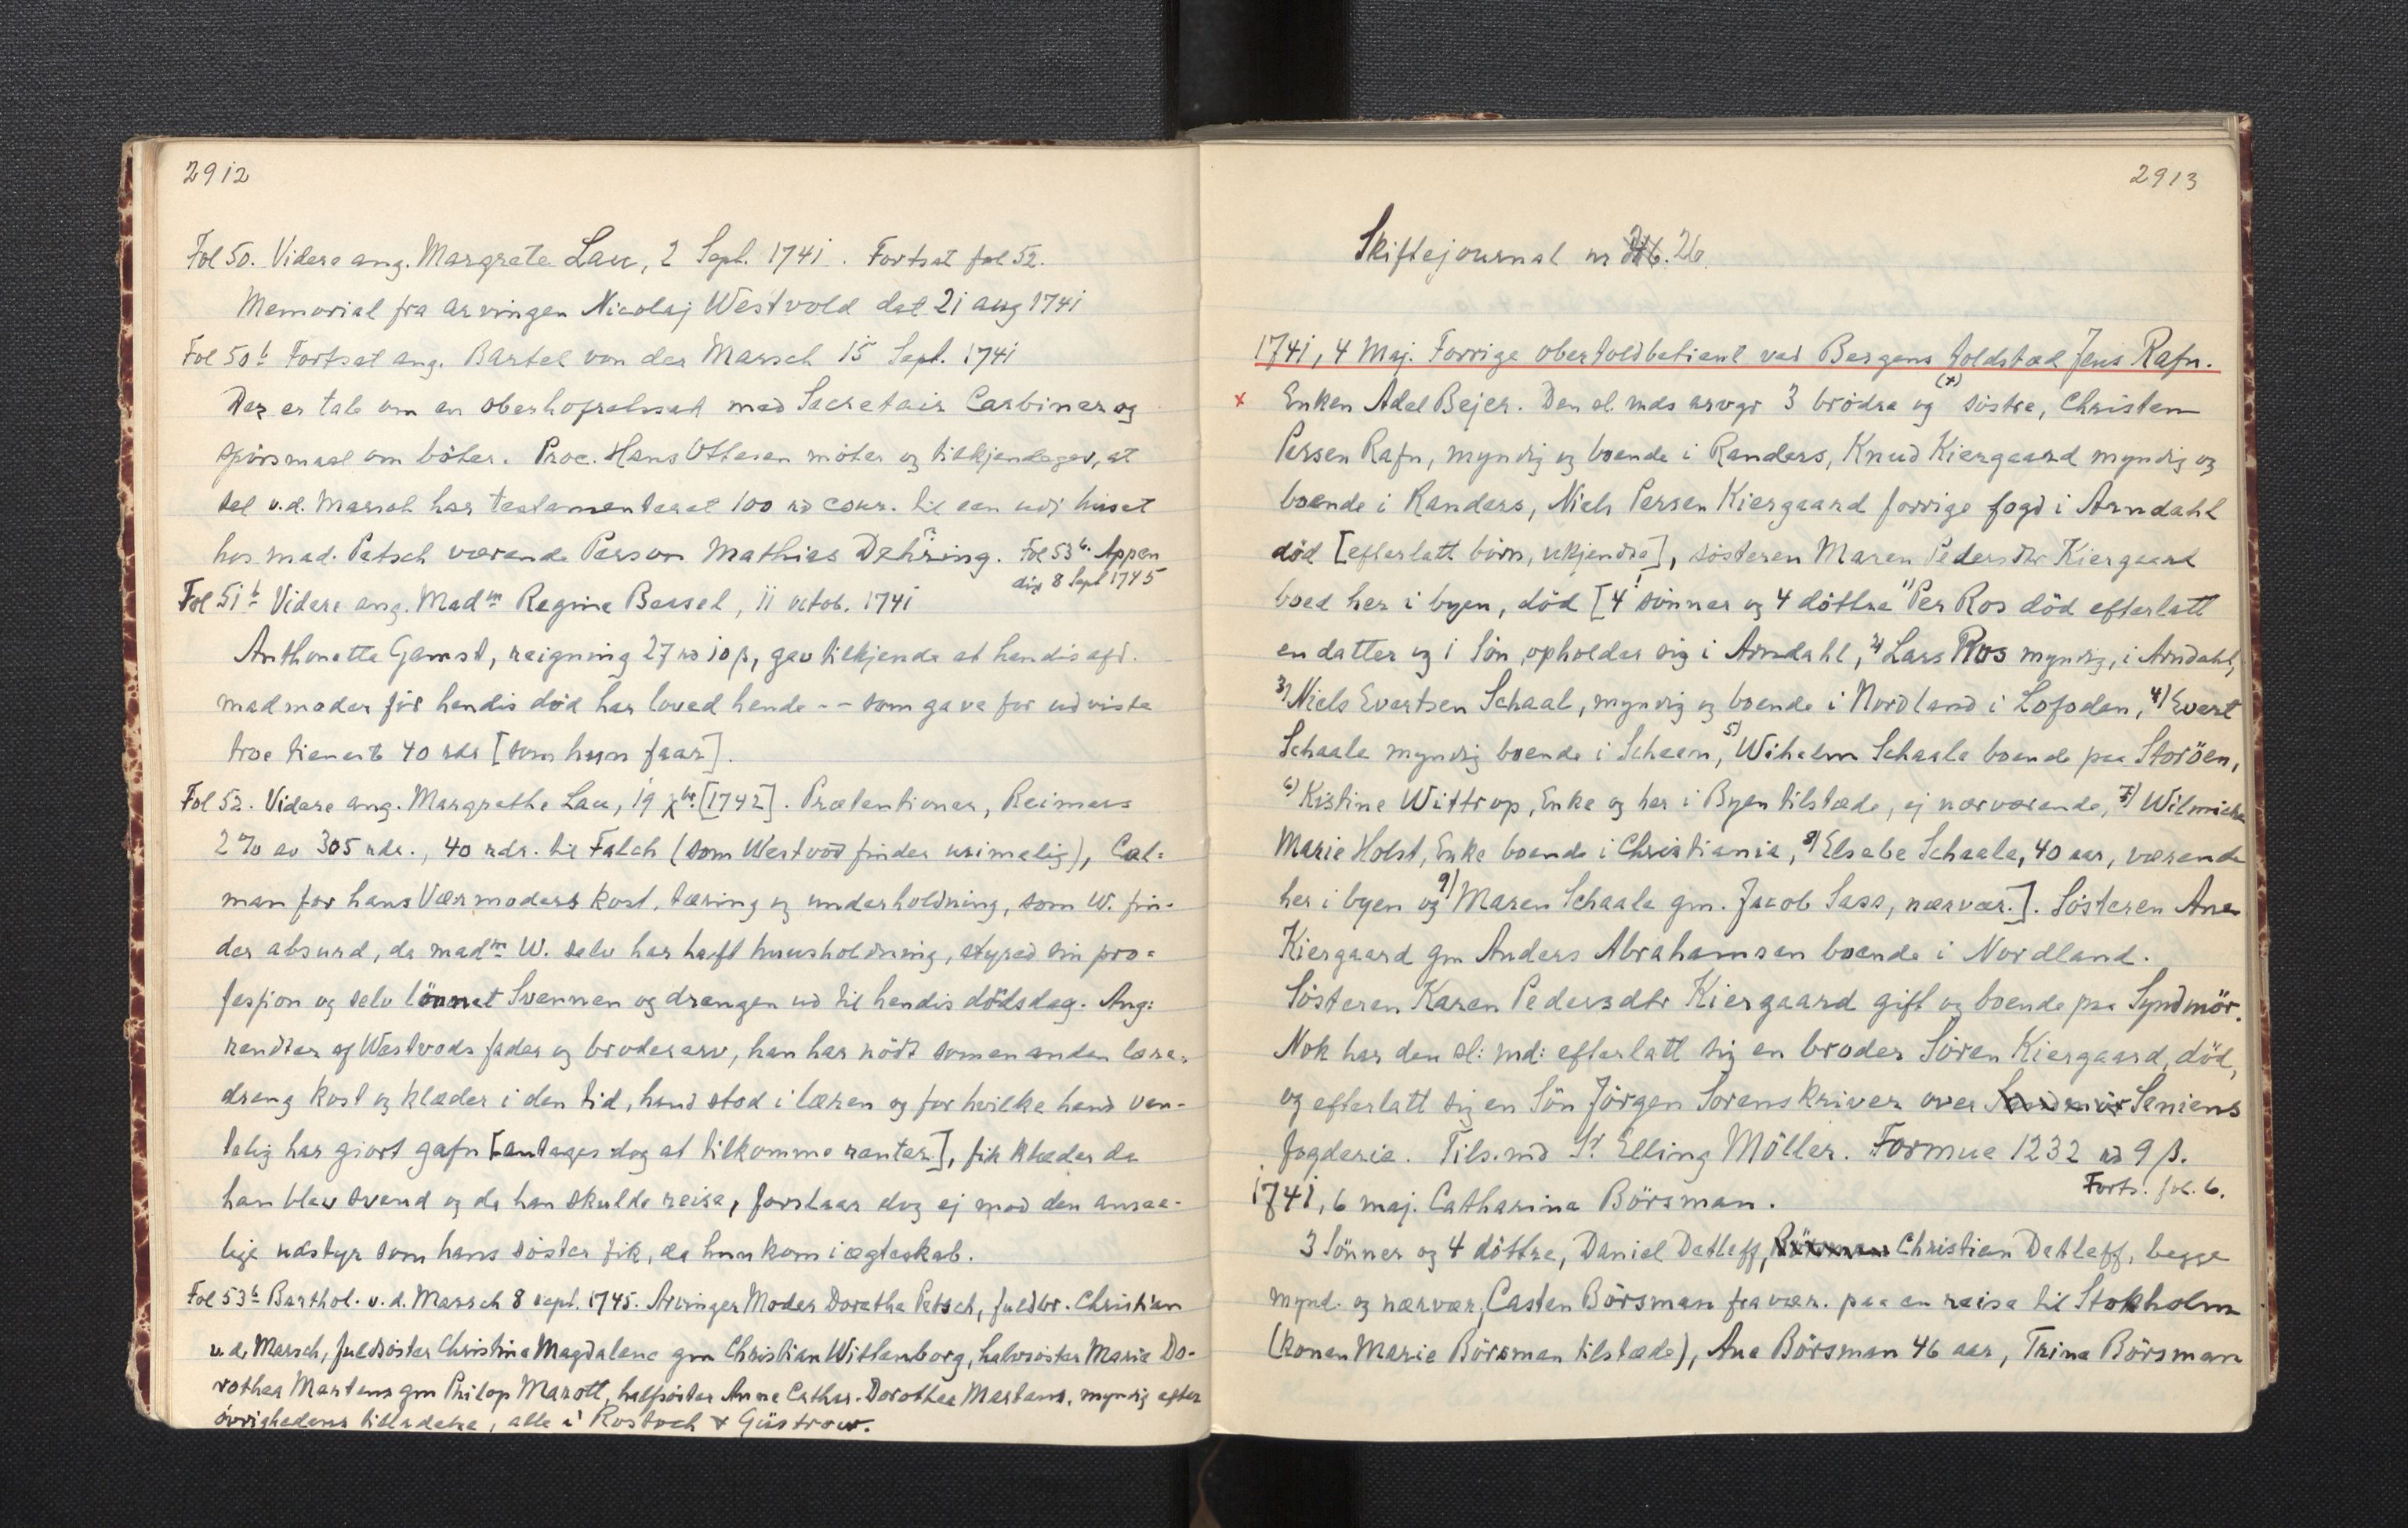 2912
Fol 50. Videre ang. Margrete Lau, 2 Sept. 1741. Fortsat fol 52.
Memorial fra arvingen Nicolaj Westvold dat 21 aug 1741
Fol 50b Fortsat ang. Bartel von der Marsch 15 Sept. 1741
Der er tale om en oberhofretssak med Secretair Carbiner og
spörsmaal om böter. Proc. Hans Ottesen möter og tilkjendegav, at
sal v.d. Marsch har testamenteret 100 rd cour. til een udj huset
hos mad. Petsch værende Person Mathias Dehring. Fol 53b. Appen
dix 8 Sept 1745
Fol 51b Videre ang. Madm Regina Bessel, 11 octob. 1741
Anthonette Gamst, reigning 27 rd 10 β, gav tilkjende at hendis afd.
madmoder för hendis död har loved hende -- som gave for udviste
troe tieneste 40 rdr [som hun faar].
Fol 52. Videre ang. Margrethe Lau, 19 Xbr. [1742]. Prætentioner, Reimers
2 % av 305 rdr., 40 rdr. til Falch (som Westvod finder urimelig), Cal=
man for hans Værmoders kost, tæring og underholdning, som W. fin-
der absurd, da madm W. selv har hafft huusholdning, styred sin pro=
fession og selv lönnet Svennen og drengen ud til hendis dödsdag. Ang:
rendter af Westvods fader og broderarv, han har nödt som en anden lære=
dreng kost og klæder i den tid, hand stod i læren og for hvilke hand ven-
telig har giort gafn [antages dog at tilkomme renter], fik klæder da
han blev svend og da han skulde reise, forslaar dog ej mod den ansee-
lige udstyr som hans söster fik, da hun kom i ægteskab.
Fol 53b Barthol. v. d. Marsch 8 sept. 1745. Arvinger Moder Dorothea Petsch, fuldbr. Christian
v. d. Marsch, fuldsöster Christina Magdalene gm Christian Wittenborg, halvsöster Maria Do-
rothea Martens gm Philop Marott, halfsöster Anne Cathar. Dorothea Martens, myndig efter
övrighedens tilladelse, alle i Rostoch & Güstrow.
2913
Skiftejournal nr 26.
1741, 4 Maj. Forrige obertoldbetient ved Bergens toldstæd Jens Rafn.
x Enken Adel Bejer. Den sl. mds arvgr 3 brödre og (x) söstre, Christen
Persen Rafn, myndig og boende i Randers, Knud Kiergaard myndig og
boende i Randers, Niels Persen Kiergaard forrige fogd i Arndahl
död [efterlatt börn, ukjendte], sösteren Maren Pedersdtr Kiergaard
boed her i byen, död [4! sönner og 4 döttre 1) Per Ros död efterlatt
en datter og 1 Sön opholder sig i Arndahl, 2) Lars Ros myndig, i Arndahl,
3) Niels Evertsen Schaal, myndig og boende i Nordland i Lofoden, 4) Evert
Schaale myndig boende i Scheen, 5) Wihelm Schaale boende paa Storöen,
6) Kistine Wittrop, Enke og her i Byen tilstæde, ej nærværende, 7) Wilmicke
Marie Holst, Enke boende i Christiania, 8) Elsebe Schaale, 40 aar, værende
her i byen og 9) Maren Schaale gm. Jacob Sass, nærvær.]. Sösteren Ane
Kiergaard gm Anders Abrahamsen boende i Nordland.
Sösteren Karen Pedersdtr Kiergaard gift og boende paa Syndmör.
Nok har den sl: md: efterlatt sig en broder Sören Kiergaard, död,
og efterlatt sig en Sön Jörgen Sorenskriver over Seniens
fogderie. Tils. md Sr Elling Möller. Formue 1232 rd 9 β.
Forts. fol. 6.
1741, 6 maj. Catharina Börsman.
3 Sönner og 4 döttre, Daniel Detleff, Christian Detleff, begge
mynd. og nærvær, Casten Börsman fravær. paa en reise til Stokholm
(konen Marie Börsman tilstæde), Ane Börsman 46 aar, Trina Börsman